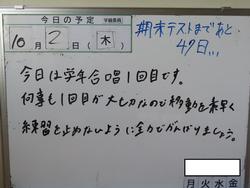 今日の予定
10月2日(木)
期末テストまであと、
47日...
今日は学年合唱1回目です。
何事も1回目が大切なので移動を素早く
練習を止めないように全力でがんばりましょう。
月火水金